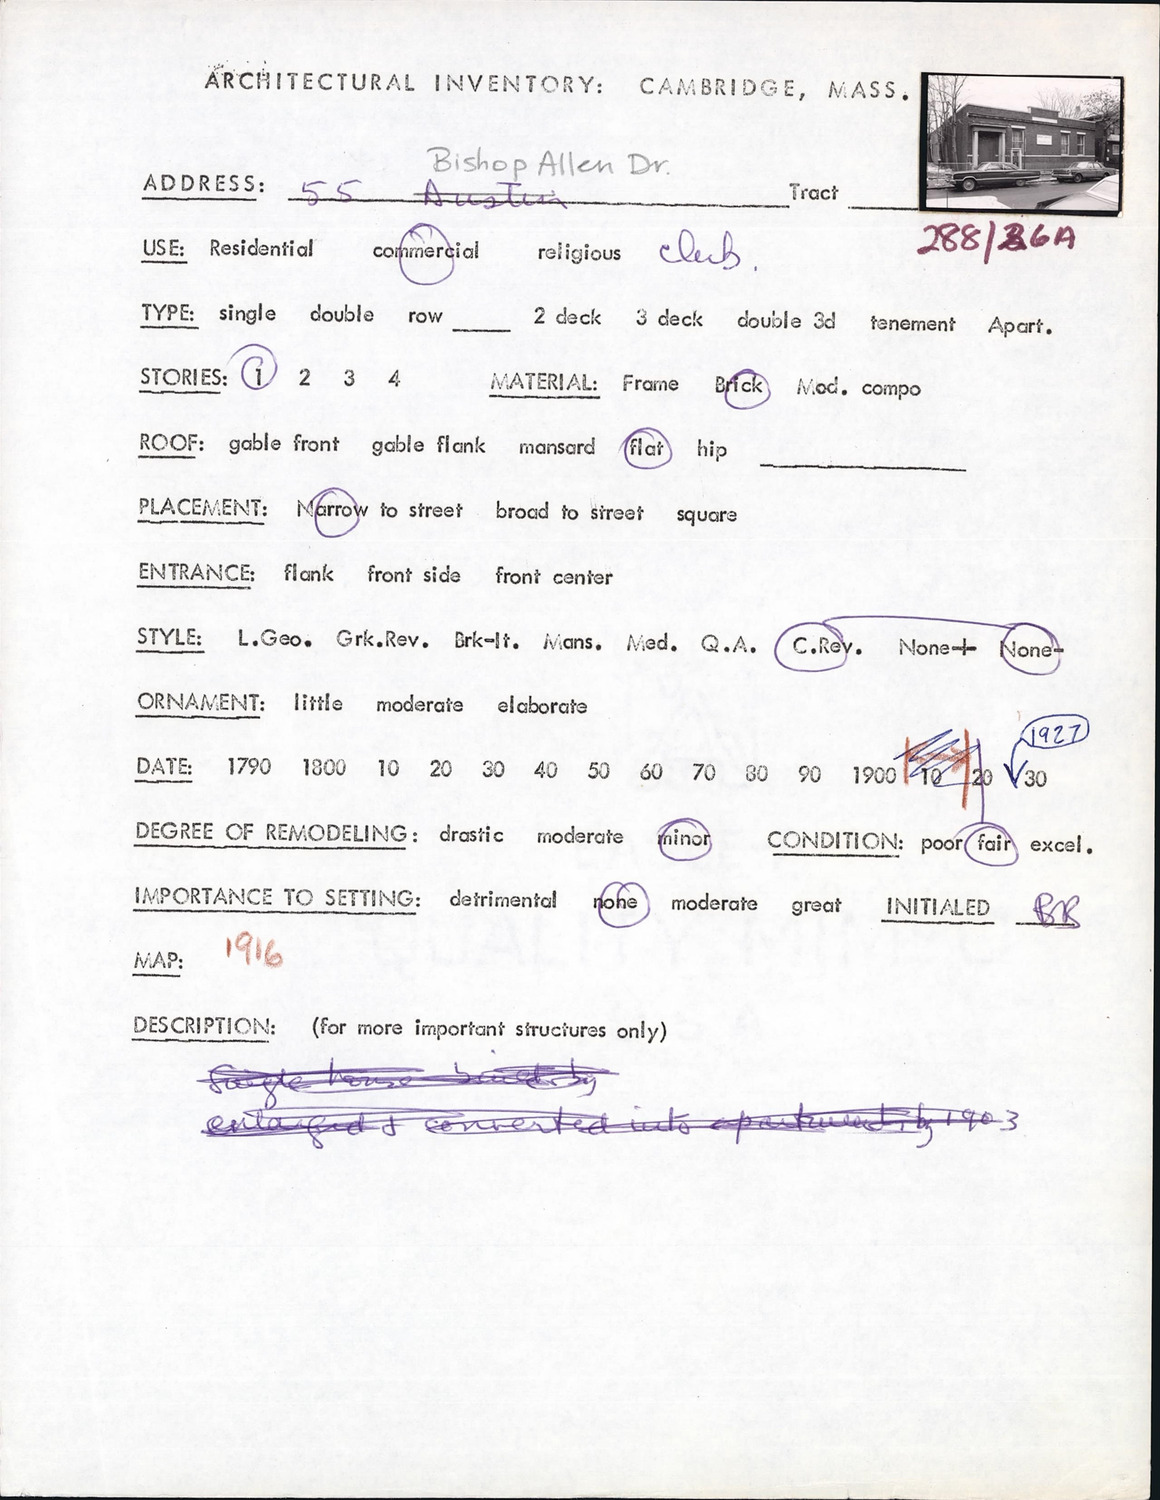 ARCHITECTURAL INVENTORY: CAMBRIDGE, MASS.
Bishop Allen Dr.
ADDRESS: 55 Austin Tract
288/36A
USE: Residential commercial religious club.
TYPE: single double row ____ 2 deck 3 deck double 3d tenement Apart.
STORIES: 1 2 3 4 MATERIAL: Frame Brick Mod. compo
ROOF: gable front gable flank mansard flat hip
PLACEMENT: Narrow to street broad to street square
ENTRANCE: flank front side front center
STYLE: L.Geo. Grk.Rev. Brk-It. Mans. Med. Q.A. C.Rev. None+ None-
ORNAMENT: little moderate elaborate
1927
DATE: 1790 1800 10 20 30 40 50 60 70 80 90 1900 10 20 30
DEGREE OF REMODELING: drastic moderate minor CONDITION: poor fair excel.
IMPORTANCE TO SETTING: detrimental none moderate great INITIALED BR
MAP: 1916
DESCRIPTION: (for more important structures only)
Single house built by
enlarged & converted into apartments by 1903